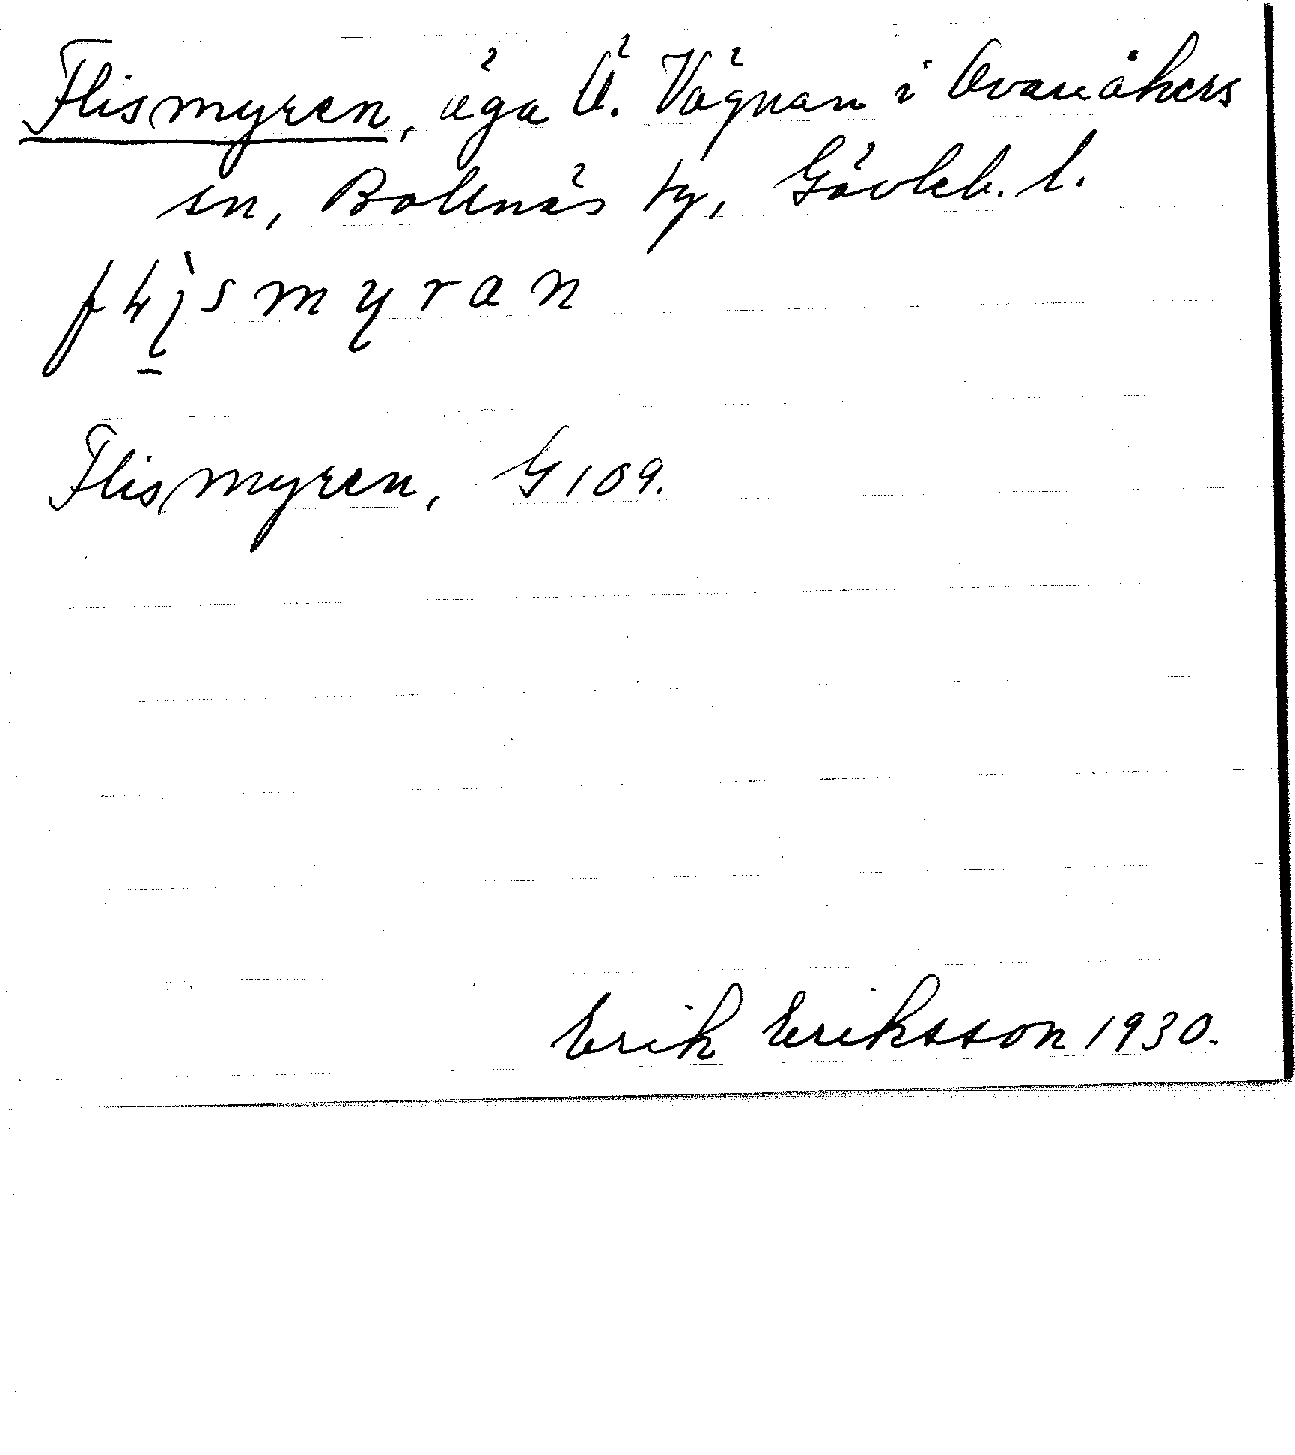 Flismyren, äga Ö. Vägnan i Ovanåkers
sn, Bollnäs tg, Gävleb. l.
Flismyren, G 109.
Erik Eriksson 1930.